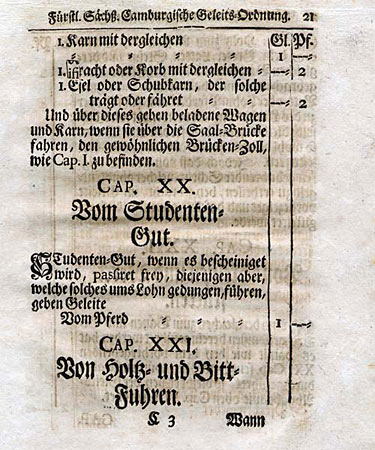 Fürstl. Sächß. Camburgische Geleits-Ordnung. 21
1. Karn mit dergleichen Gl. Pf.
" " " 1 —
1. Fracht oder Korb mit dergleichen " — 2
1. Esel oder Schubkarn, der solche
trägt oder fähret " " — 2
Und über dieses geben beladene Wagen
und Karn, wenn sie über die Saal-Brücke
fahren, den gewöhnlichen Brücken-Zoll,
wie Cap. I. zu befinden.
CAP. XX.
Vom Studenten-
Gut.
Studenten-Gut, wenn es bescheiniget
wird, passiret frey, diejenigen aber,
welche solches ums Lohn gedungen, führen,
geben Geleite
Vom Pferd " " " 1 —
CAP. XXI.
Von Holtz- und Bitt-
Fuhren.
C 3 Wann